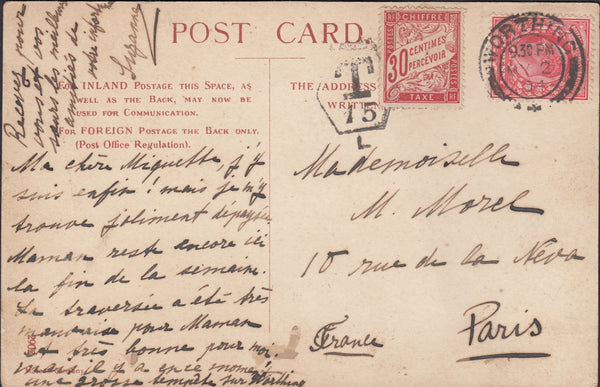 POST CARD.
For INLAND Postage this Space, as
well as the Back, may now be
used for Communication.
For FOREIGN Postage the Back only.
(Post Office Regulation).
THE ADDRESS
WRITTEN
Ma chère Miquette, j'y
suis enfin! mais je m'y
trouve joliment dépaysée.
Maman reste encore ici
la fin de la semaine.
La traversée a été très
mauvaise pour Maman
et très bonne pour moi
mais il y a en ce moment
une grosse tempête sur Worthing
Recevez pour
vous et vos
sœurs les meilleures
amitiés de
votre
Suzanne
Mademoiselle
M. Morel
10 rue de la Néva
Paris
France
T
15
L
CHIFFRE
30 CENTIMES
À PERCEVOIR
TAXE
RF
POSTES
WORTHING
930 PM
MY 2